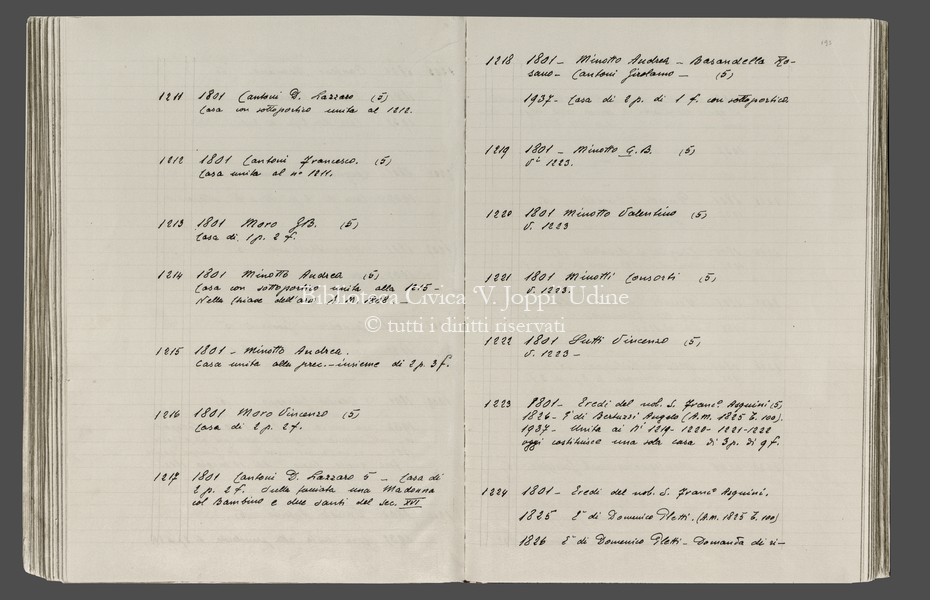 1211 1801 Cantoni D. Lazzaro (5)
Casa con sottoportico unita al 1212.
1212 1801 Cantoni Francesco. (5)
Casa unita al n° 1211.
1213 1801 Moro G.B. (5)
Casa di 1 p. 2 f.
1214 1801 Minotto Andrea (5)
Casa con sottoportico unita alla 1215 -
Nella chiave dell'arco
1215 1801 - Minotto Andrea.
Casa unita alla prec. - insieme di 2 p. 3 f.
1216 1801 Moro Vincenzo (5)
Casa di 2 p. 2 f.
1217 1801 Cantoni D. Lazzaro 5 - Casa di
2 p. 2 f. Sulla facciata una Madonna
col Bambino e due Santi del sec. XVI
193
1218 1801 - Minotto Andrea - Barandella Ro-
sano - Cantoni Girolamo - (5)
1937 - Casa di 2 p. di 1 f. con sottoportico.
1219 1801 - Minotto G.B. (5)
V. 1223.
1220 1801 Minotto Valentino (5)
V. 1223
1221 1801 Minotti Consorti (5)
V. 1223.
1222 1801 Vincenzo (5)
V. 1223 -
1223 1801 - Eredi del nob. S. Franc° Asquini (5)
1826 - È di Bertuzzi Angelo (A.M. 1825 T. 100).
1937 - Unita ai N' 1219 - 1220 - 1221 - 1222
oggi costituisce una sola casa di 3 p. di 9 f.
1224 1801 - Eredi del nob. S. Franc° Asquini.
1825 È di Domenico Pletti. (A.M. 1825 T. 100)
1826 È di Domenico Pletti - Domanda di ri-
Biblioteca Civica 'V. Joppi' Udine
© tutti i diritti riservati